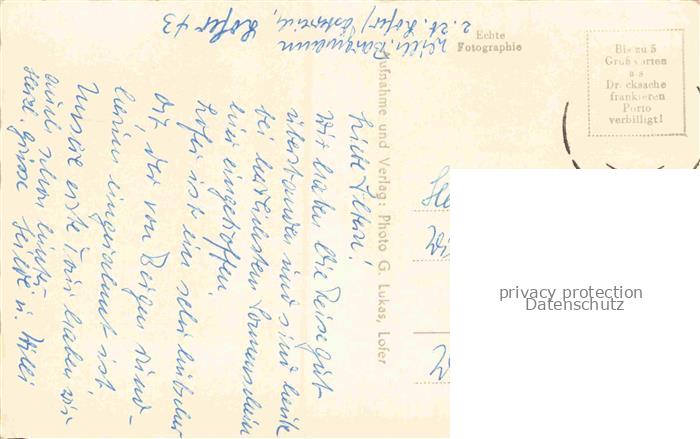 Willi Bargmann
z. Zt. Lofer/Österreich,
Lofer 43
Echte
Fotographie
Bis zu 5
Grußworten
als
Drucksache
frankieren
Porto
verbilligt!
Aufnahme und Verlag: Photo G. Lukas, Lofer
Liebe Eltern!
Wir haben die Reise gut
überstanden und sind heute
bei warmem Sonnenschein
hier eingetroffen.
Lofer ist ein sehr hübscher
Ort, der von Bergen rund-
herum eingerahmt ist.
Unsere erste haben wir
auch schon hinter
Herzl. Grüße Hilde u. Willi
privacy protection
Datenschutz